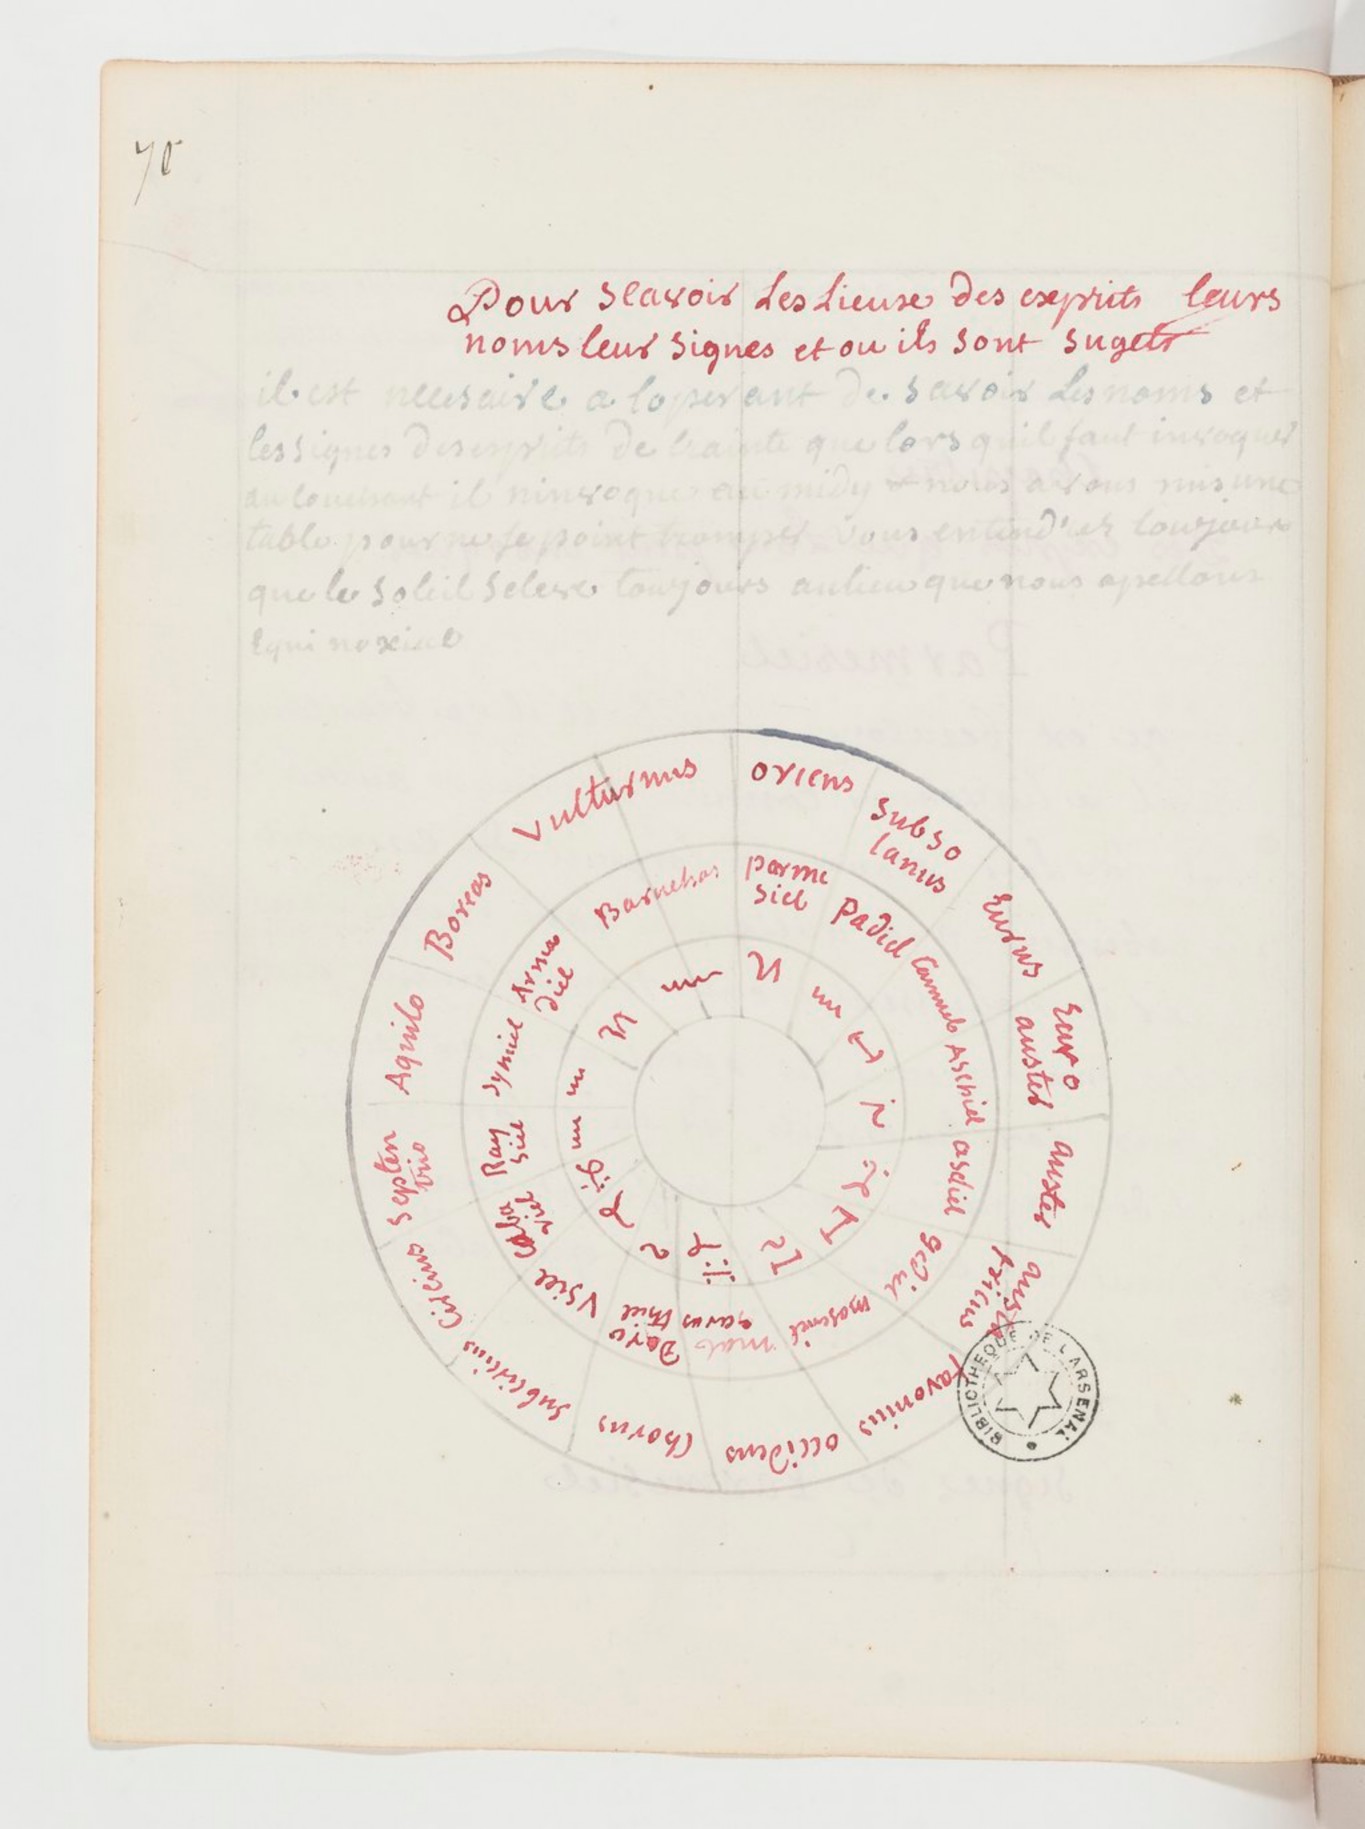 70
Pour scavoir Les Lieuse des esprits leurs
noms leur signes et ou ils sont sugets
il est necesaire a loperant de savoir Les noms et
les signes des esprits de crainte que lors quil faut invoquer
au couchant il ninvoque au midy nous avons mis une
table pour ne se point tromper vous entendres tousjours
que le soleil seleve toujours au lieu que nous apellons
Equinoxial
oriens
subso
lanus
Eurus
Euro
auster
auster
austr
Favonius
occidens
Chorus
subcircius
Circius
septen
trio
Aquilo
Boreas
Vulturnus
parme
siel
padiel
Camuel
Aschiel
asdiel
gediel
maseriel
mal
garas
Doro
thiel
Vsiel
Caba
riel
Ray
siel
symiel
Arma
diel
Baruchas
BIBLIOTHEQUE DE L'ARSENAL